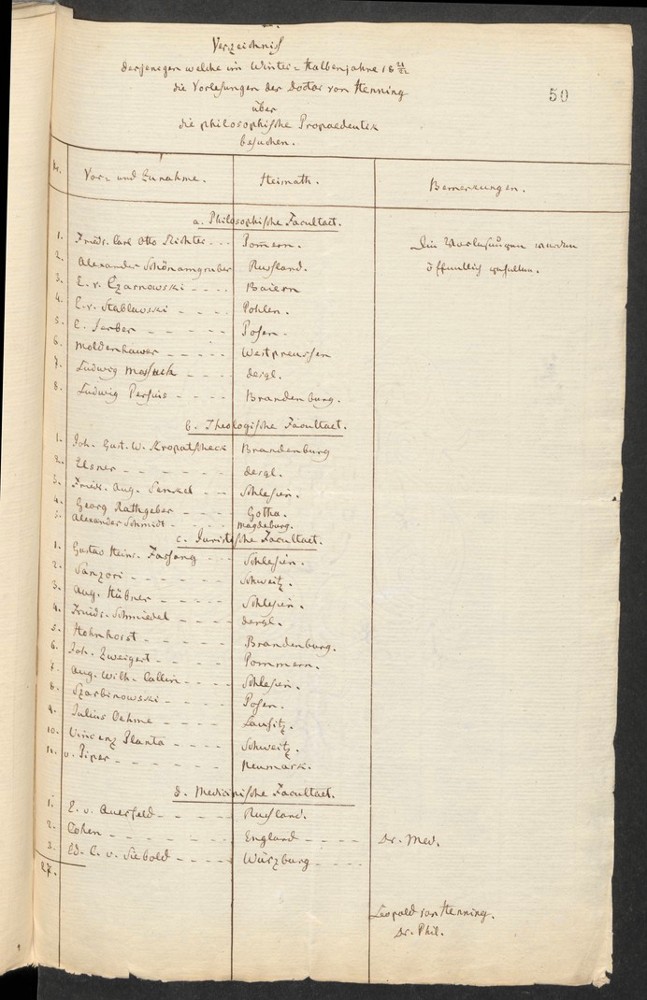 Verzeichniß
derjenigen welche im Winter-Halbenjahre 18 21/22
die Vorlesungen des Doctor von Henning
über
die philosophische Propaedeutik
besuchen.
50
Nr. Vor- und Zunahme. Heimath. Bemerkungen.
a. Philosophische Facultaet.
1. Friedr. Carl Otto Richter - - - Pommern. Die Vorlesungen wurden
2. Alexander Schönamgruber Rußland. öffentlich gehalten.
3. E. v. Czarnowski - - - - Baiern
4. E. v. Stablewski - - - - Pohlen.
5. C. Ferber - - - - - Posen.
6. Moldenhawer - - - - - Westpreussen
7. Ludwig - - - - desgl.
8. Ludwig Persius - - - - Brandenburg.
b. Theologische Facultaet.
1. Joh. Gust. W. Kropatscheck Brandenburg
2. Elsner - - - - - - desgl.
3. Friedr. Aug. - - - Schlesien.
4. Georg Rathgeber - - - - Gotha.
5. Alexander Schmidt - - - - Magdeburg.
c. Juristische Facultaet.
1. Gustav Heinr. - - - Schlesien.
2. - - - - - - Schweitz.
3. Aug. Hübner - - - - Schlesien.
4. Friedr. Schmiedel - - - desgl.
5. Hohnhorst - - - - - Brandenburg.
6. Joh. Zweigert - - - - Pommern.
7. Aug. Wilh. - - - - Schlesien.
8. - - - - Posen.
9. Julius Oehme - - - - Lausitz.
10. Vincenz Planta - - - - Schweitz.
11. v. Piper - - - - - - Neumark.
d. Medicinische Facultaet.
1. E. v. Auerfeld - - - - Rußland.
2. Cohen - - - - - - England - - - - Dr. Med.
3. Ed. C. v. Siebold - - - - Würzburg - - - -
27.
Leopold von Henning.
Dr. Phil.